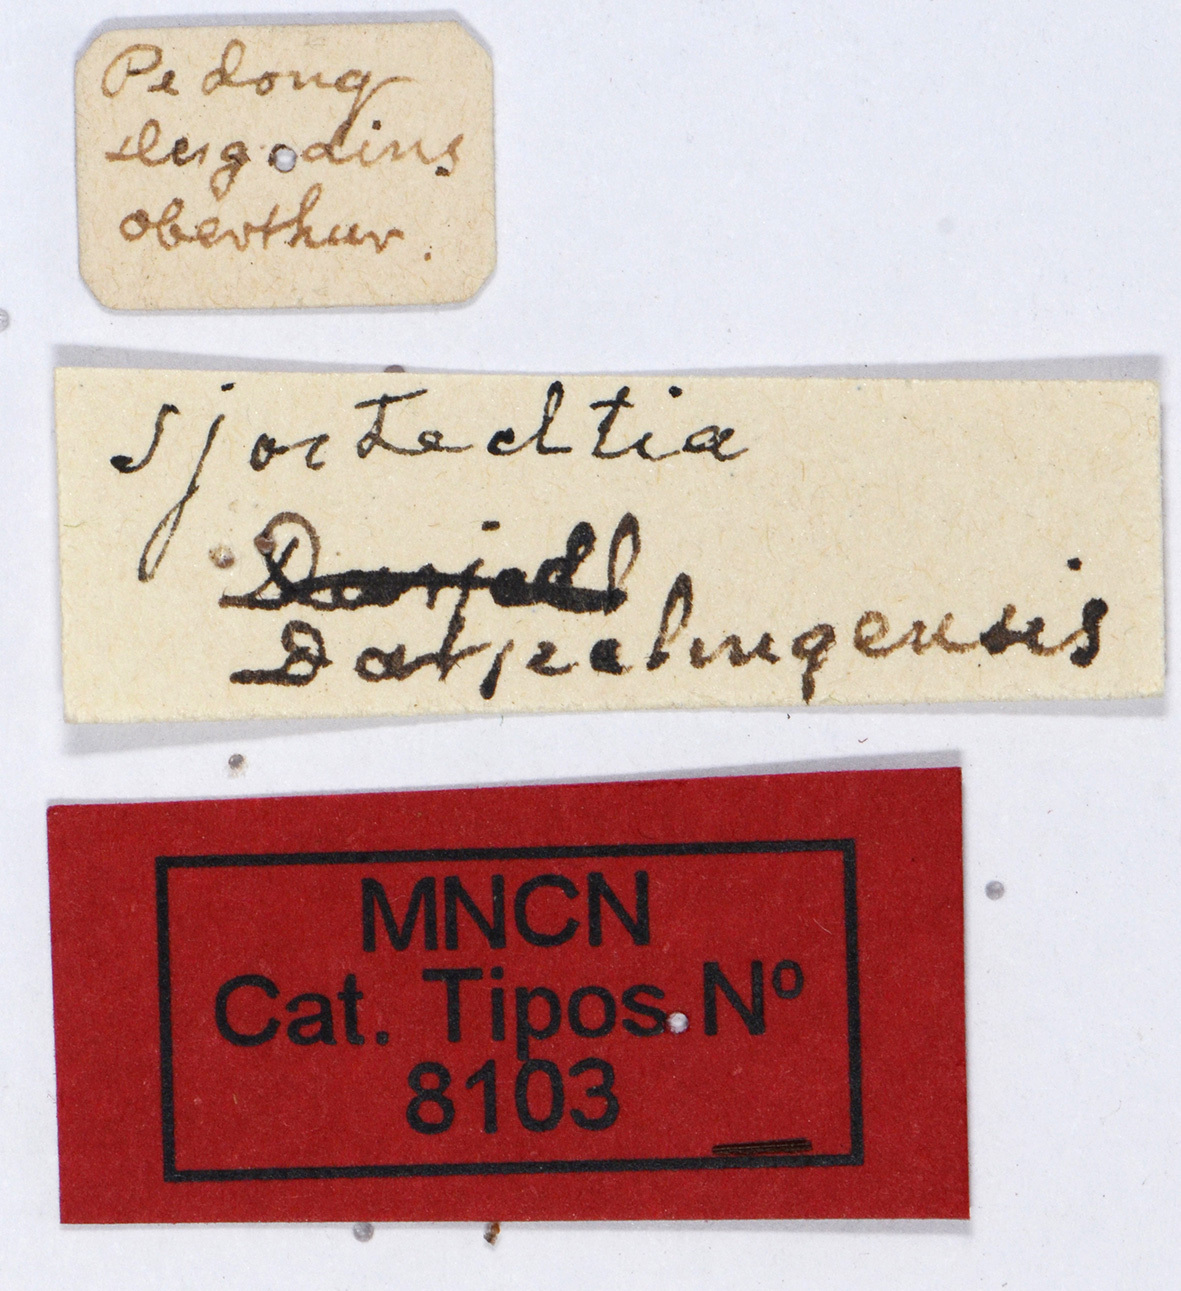 Pedong
Desgodins
oberthur.
Sjostedtia
Darjeelingensis
MNCN
Cat. Tipos Nº
8103